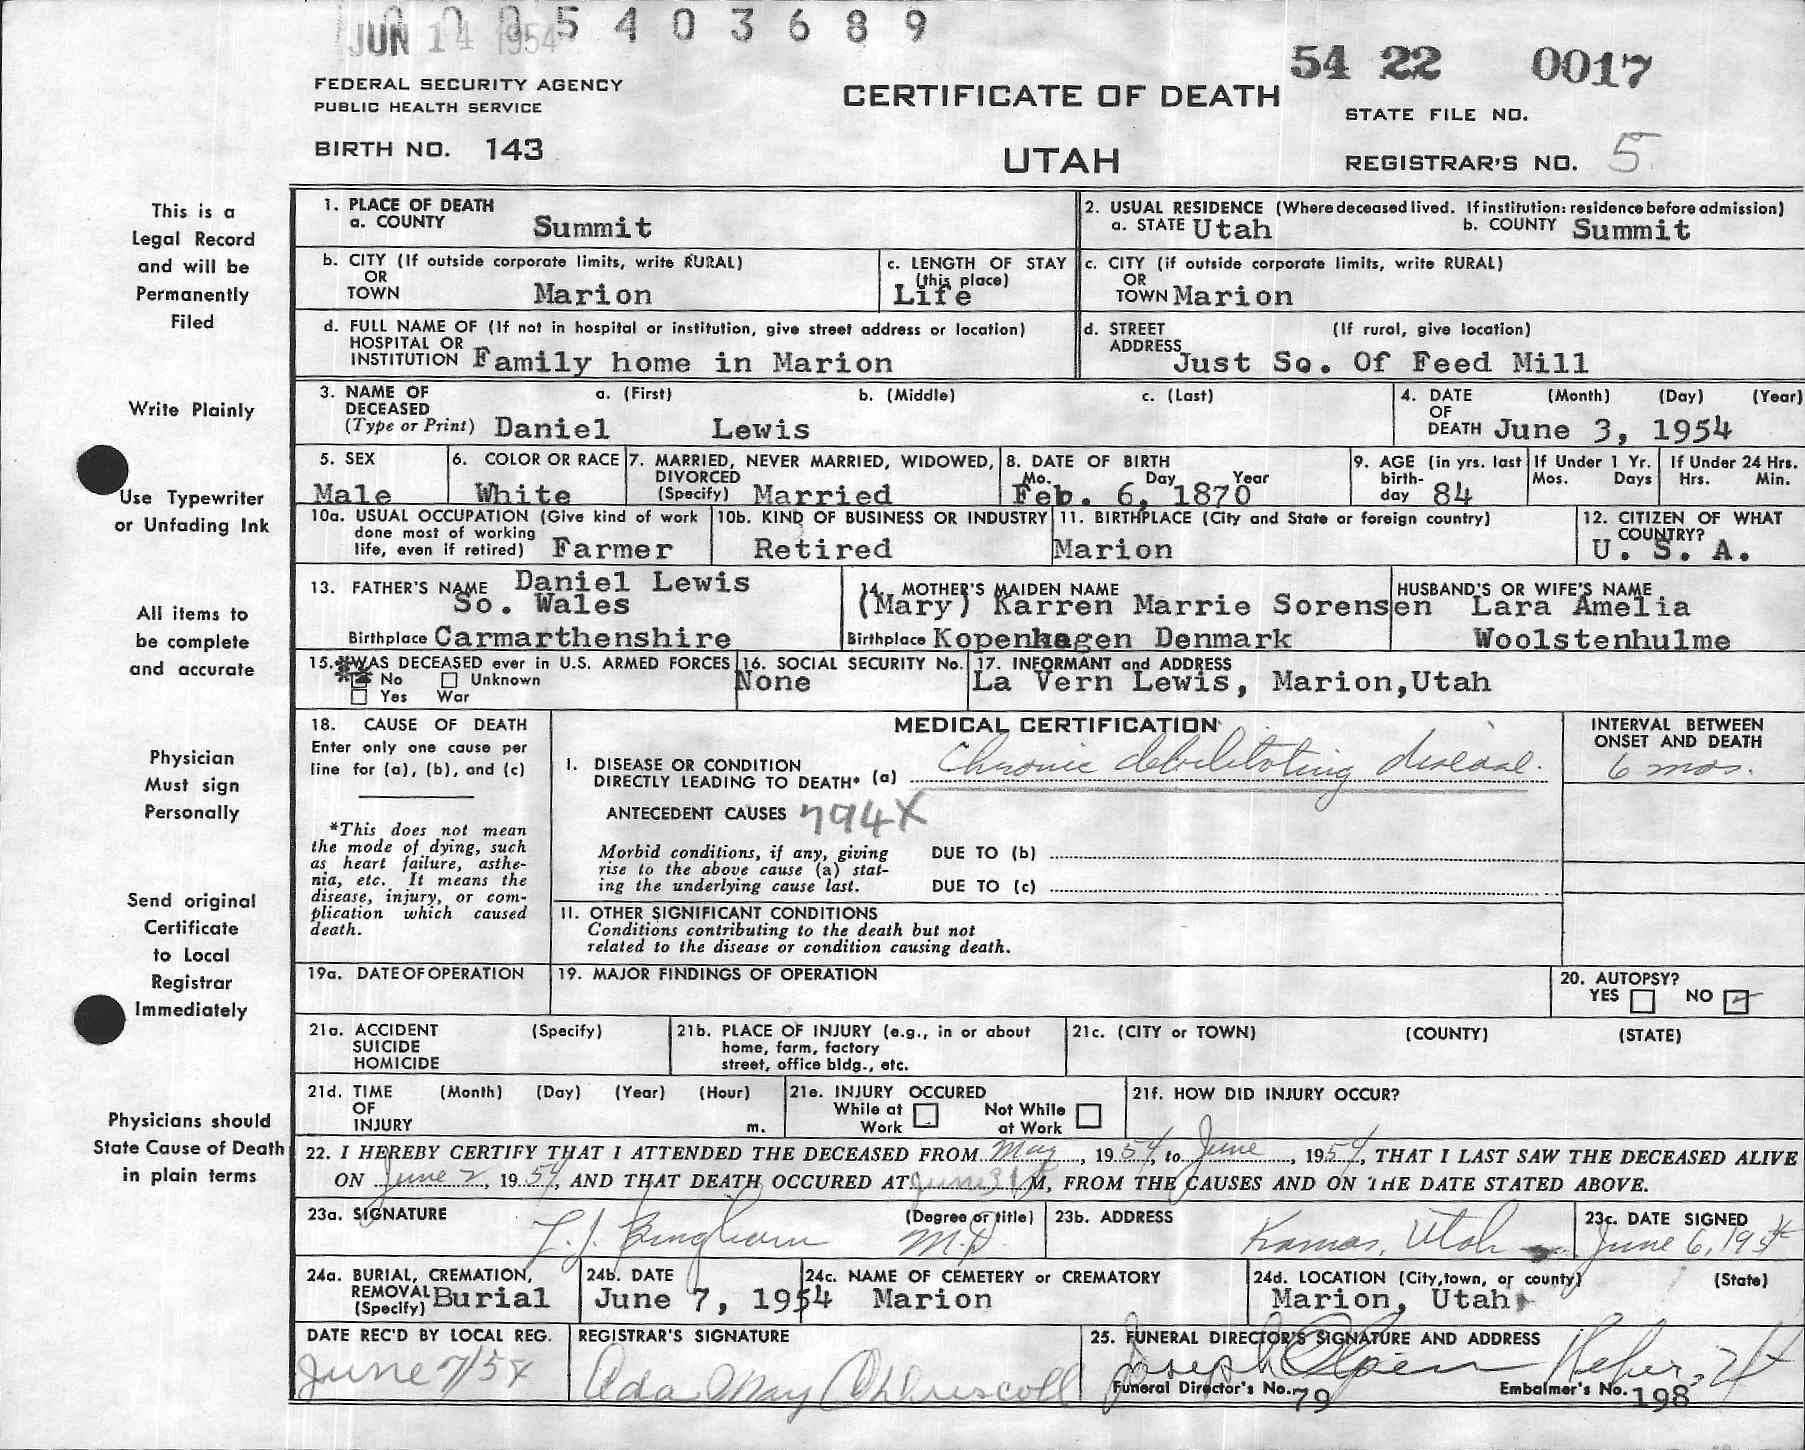 JUN 14 1954 5 4 0 3 6 8 9
54 22 0017
FEDERAL SECURITY AGENCY
PUBLIC HEALTH SERVICE
CERTIFICATE OF DEATH
STATE FILE NO.
BIRTH NO. 143
UTAH
REGISTRAR'S NO. 5
This is a
Legal Record
and will be
Permanently
Filed
Write Plainly
Use Typewriter
or Unfading Ink
All items to
be complete
and accurate
Physician
Must sign
Personally
Send original
Certificate
to Local
Registrar
Immediately
Physicians should
State Cause of Death
in plain terms
1. PLACE OF DEATH
a. COUNTY Summit
2. USUAL RESIDENCE (Where deceased lived. If institution: residence before admission)
a. STATE Utah b. COUNTY Summit
b. CITY (If outside corporate limits, write RURAL)
OR
TOWN Marion
c. LENGTH OF STAY
(this place)
Life
c. CITY (if outside corporate limits, write RURAL)
OR
TOWN Marion
d. FULL NAME OF (If not in hospital or institution, give street address or location)
HOSPITAL OR
INSTITUTION Family home in Marion
d. STREET (If rural, give location)
ADDRESS Just So. Of Feed Mill
3. NAME OF a. (First) b. (Middle) c. (Last)
DECEASED
(Type or Print) Daniel Lewis
4. DATE (Month) (Day) (Year)
OF
DEATH June 3, 1954
5. SEX
Male
6. COLOR OR RACE
White
7. MARRIED, NEVER MARRIED, WIDOWED,
DIVORCED
(Specify) Married
8. DATE OF BIRTH
Mo. Day Year
Feb. 6, 1870
9. AGE (in yrs. last
birth-
day 84
If Under 1 Yr.
Mos. Days
If Under 24 Hrs.
Hrs. Min.
10a. USUAL OCCUPATION (Give kind of work
done most of working
life, even if retired) Farmer
10b. KIND OF BUSINESS OR INDUSTRY
Retired
11. BIRTHPLACE (City and State or foreign country)
Marion
12. CITIZEN OF WHAT
COUNTRY?
U. S. A.
13. FATHER'S NAME Daniel Lewis
So. Wales
Birthplace Carmarthenshire
14. MOTHER'S MAIDEN NAME
(Mary) Karren Marrie Sorensen
Birthplace Kopenhagen Denmark
HUSBAND'S OR WIFE'S NAME
Lara Amelia
Woolstenhulme
15. WAS DECEASED ever in U.S. ARMED FORCES
No Unknown
Yes War
16. SOCIAL SECURITY No.
None
17. INFORMANT and ADDRESS
La Vern Lewis, Marion,Utah
18. CAUSE OF DEATH
Enter only one cause per
line for (a), (b), and (c)
*This does not mean
the mode of dying, such
as heart failure, asthe-
nia, etc. It means the
disease, injury, or com-
plication which caused
death.
MEDICAL CERTIFICATION
I. DISEASE OR CONDITION
DIRECTLY LEADING TO DEATH* (a) Chronic debilitating disease.
ANTECEDENT CAUSES 794X
Morbid conditions, if any, giving
rise to the above cause (a) stat-
ing the underlying cause last.
DUE TO (b)
DUE TO (c)
II. OTHER SIGNIFICANT CONDITIONS
Conditions contributing to the death but not
related to the disease or condition causing death.
INTERVAL BETWEEN
ONSET AND DEATH
6 mos.
19a. DATE OF OPERATION
19. MAJOR FINDINGS OF OPERATION
20. AUTOPSY?
YES NO
21a. ACCIDENT (Specify)
SUICIDE
HOMICIDE
21b. PLACE OF INJURY (e.g., in or about
home, farm, factory
street, office bldg., etc.
21c. (CITY or TOWN) (COUNTY) (STATE)
21d. TIME (Month) (Day) (Year) (Hour)
OF
INJURY m.
21e. INJURY OCCURED
While at Work
Not While at Work
21f. HOW DID INJURY OCCUR?
22. I HEREBY CERTIFY THAT I ATTENDED THE DECEASED FROM May, 1954, to June, 1954, THAT I LAST SAW THE DECEASED ALIVE
ON June 2, 1954, AND THAT DEATH OCCURED AT June 3 M, FROM THE CAUSES AND ON THE DATE STATED ABOVE.
23a. SIGNATURE (Degree or title)
Bingham M.D.
23b. ADDRESS
Kamas, Utah
23c. DATE SIGNED
June 6, 1954
24a. BURIAL, CREMATION,
REMOVAL
(Specify) Burial
24b. DATE
June 7, 1954
24c. NAME OF CEMETERY or CREMATORY
Marion
24d. LOCATION (City, town, or county) (State)
Marion, Utah
DATE REC'D BY LOCAL REG.
June 7/54
REGISTRAR'S SIGNATURE
Ada May O'Driscoll
25. FUNERAL DIRECTOR'S SIGNATURE AND ADDRESS
Joseph Olpin Heber, Ut
Funeral Director's No. 79 Embalmer's No. 198